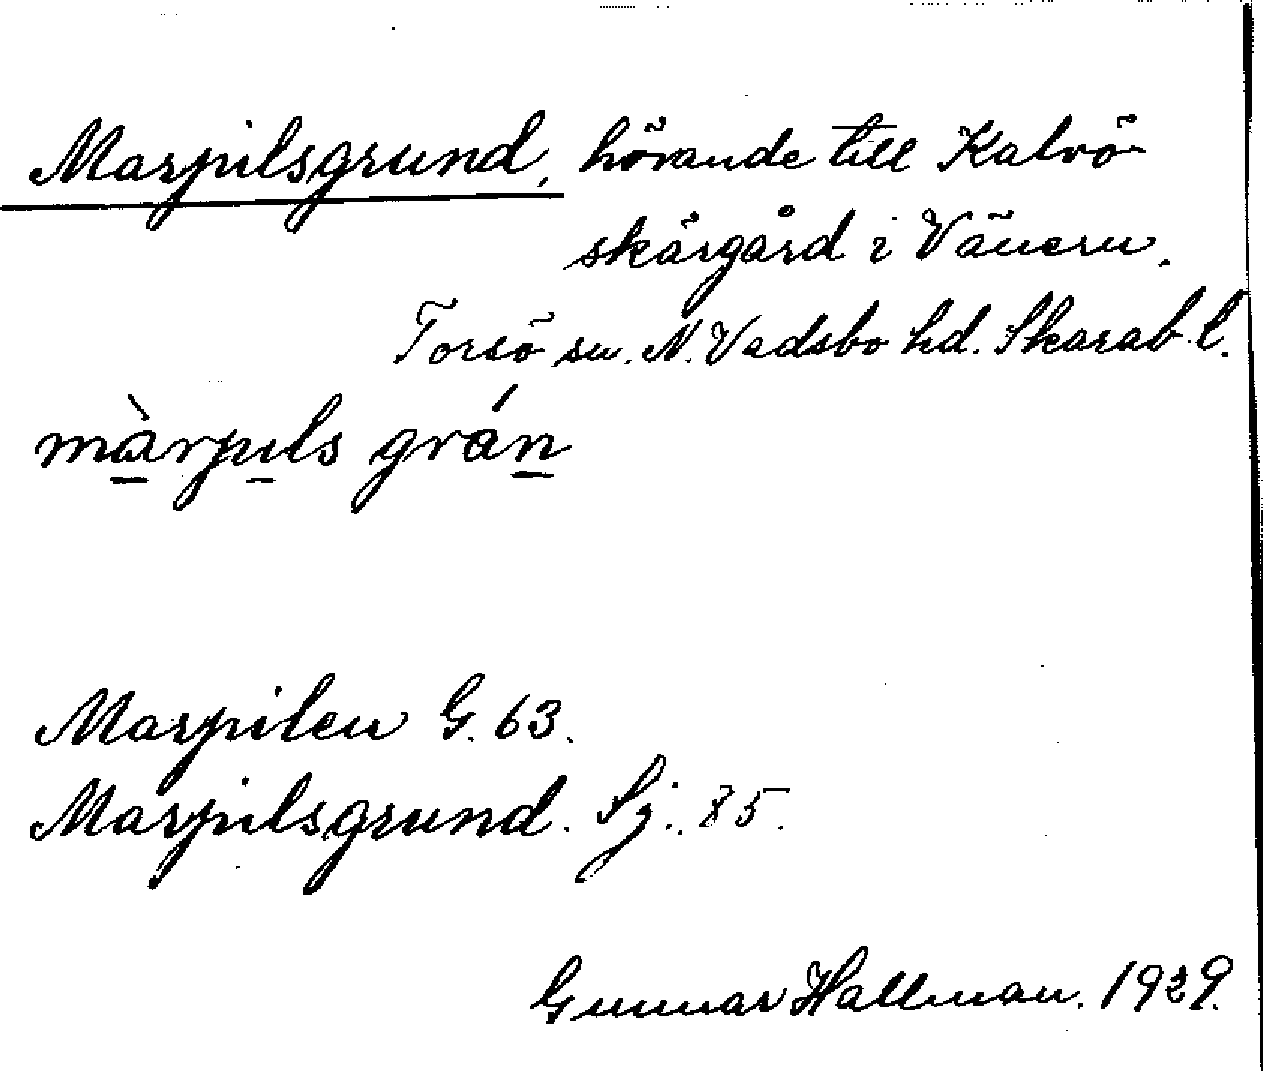 Marpilsgrund, hörande till Kalvö-
skärgård i Vänern.
Torsö sn. N. Vadsbo hd. Skarab. l.
màrpɩls grán
Marpilen G. 63.
Marpilsgrund. Sj. 85.
Gunnar Hallman. 1929.